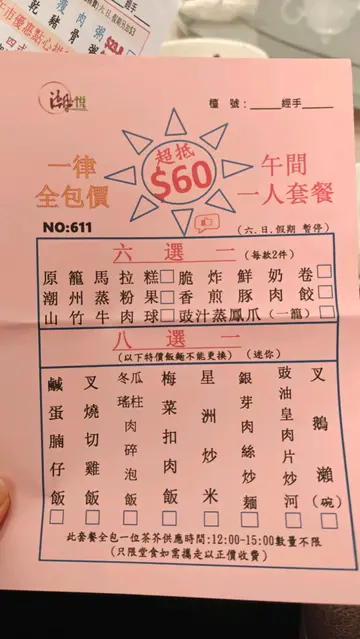 瘦肉粥
豬骨
六,日,假期另加$3
經手
市優惠點心
四式
檯號：_____經手_____
一律
全包價
超抵
$60
午間
一人套餐
NO:611
(六.日.假期 暫停)
六選一(每款2件)
原籠馬拉糕□脆炸鮮奶卷□
潮州蒸粉果□香煎豚肉餃□
山竹牛肉球□豉汁蒸鳳爪(一籠)□
八選一
(以下特價飯麵不能更換)(迷你)
鹹蛋腩仔飯□
叉燒切雞飯□
冬瓜瑤柱肉碎泡飯□
梅菜扣肉飯□
星洲炒米□
銀芽肉絲炒麵□
豉油皇肉片炒河□
叉鵝瀨(碗)□
此套餐全包一位茶芥供應時間:12:00-15:00數量不限
(只限堂食如需攜走以正價收費)